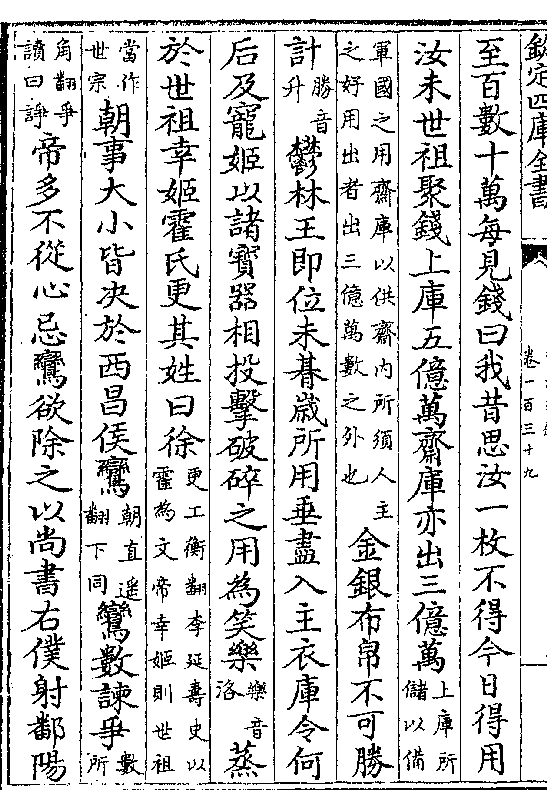 欽定四庫全書
卷一百三十九
至百數十萬每見錢曰我昔思汝一枚不得今日得用
汝未世祖聚錢上庫五億萬齋庫亦出三億萬
上庫所
儲以備
軍國之用齋庫以供齋内所須人主
之好用出者出三億萬數之外也
金銀布帛不可勝
計
勝音
升
鬱林王即位未朞歲所用垂盡入主衣庫令何
后及寵姬以諸寶器相投擊破碎之用為笑樂
樂音
洛
蒸
於世祖幸姬霍氏更其姓曰徐
更工衡翻李延壽史以
霍為文帝幸姬則世祖
當作
世宗
朝事大小皆决於西昌侯鸞
朝直遥
翻下同
鸞數諫爭
數
所
角翻爭
讀曰諍
帝多不從心忌鸞欲除之以尚書右僕射鄱陽